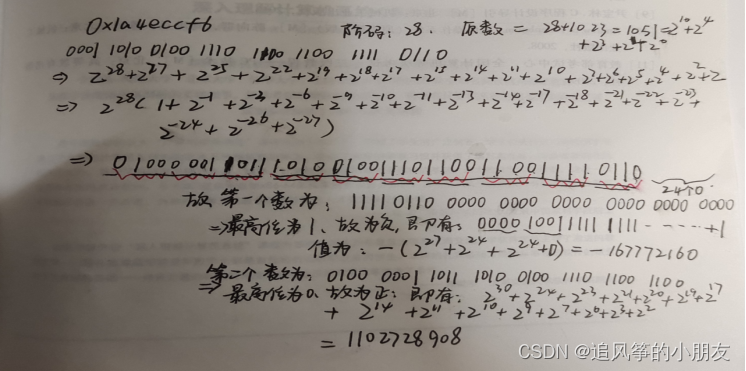 0x1a4eccf6 阶码: 28. 原数 = 28+1023=1051=2^10+2^4
+2^3+2^1+2^0
0001 1010 0100 1110 1100 1100 1111 0110
⇒ 2^28+2^27+2^25+2^22+2^19+2^18+2^17+2^15+2^14+2^11+2^10+2^7+2^6+2^5+2^4+2^2+2
⇒ 2^28(1+2^-1+2^-3+2^-6+2^-9+2^-10+2^-11+2^-13+2^-14+2^-17+2^-18+2^-21+2^-22+2^-23+
2^-24+2^-26+2^-27)
⇒ 0100000110111010010011101100110011110110 24个0.
故 第一个数为: 11110110 0000 0000 0000 0000 0000 0000
⇒最高位为1、故为负,即有: 0000 1001 1111 1111 ······+1
值为: -(2^27+2^24+2^24+0)=-167772160
第二个数为: 0100 0001 1011 1010 0100 1110 1100 1100
⇒ 最高位为0、故为正: 即有: 2^30+2^24+2^23+2^21+2^20+2^19+2^17
+ 2^14+2^11+2^10+2^9+2^7+2^6+2^3+2^2
= 1102728908
CSDN @追风筝的小朋友